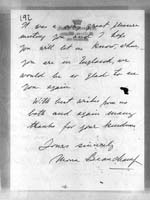 192
It was a very great pleasure
meeting you and I hope
you will let me know, when
you are in England, we
would be so glad to see
you again.
With best wishes from us
both and again many
thanks for your kindness
Yours sincerely
Mona Beauchamp